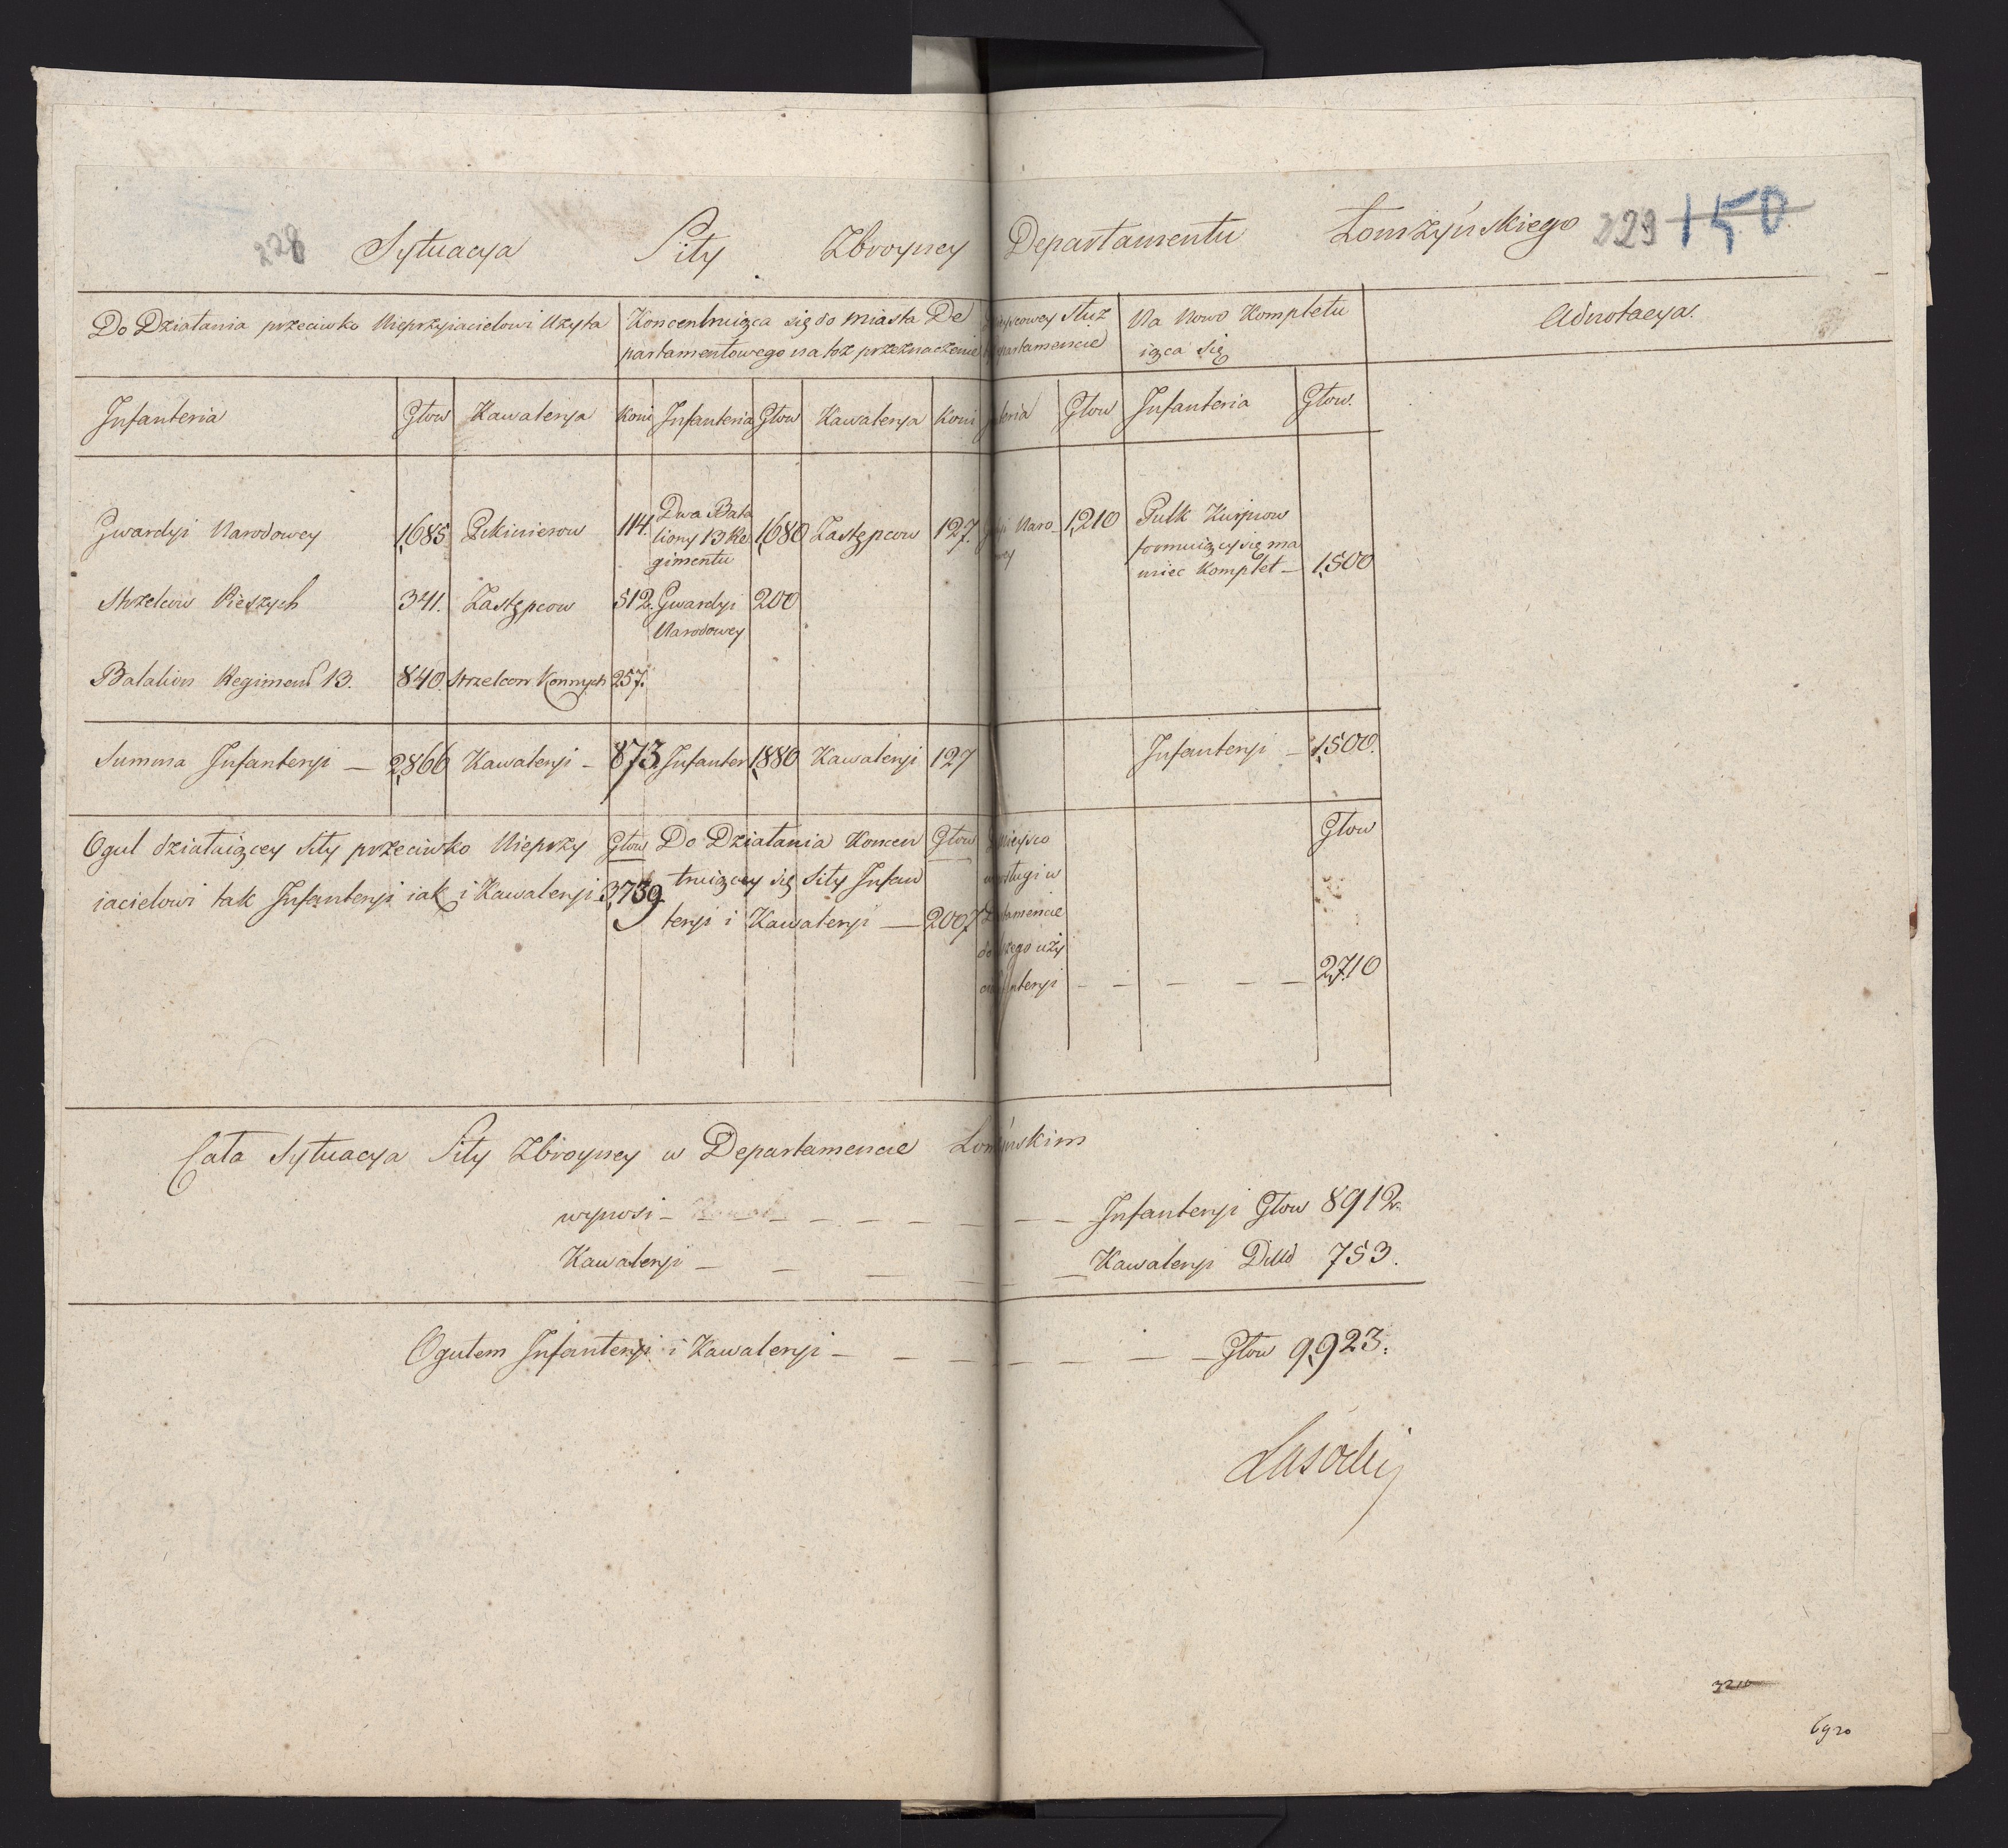 228 Sytuacya Siły Zbroyney Departamentu Łomżyńskiego 229 150
Do Działania przeciwko Nieprzyiacielowi Użyta
Koncentruiąca się do miasta De
partamentowego na toż przeznaczenie
Służ
partamencie
Na Nowo Kompletu
iąca się
Adnotacya.
Infanteria Głow Kawalerya Koni Infanteria Głow Kawalerya Koni teria Głow Infanteria Głow.
Gwardyi Narodowey 1,685 Pikinierow 114. Dwa Bata
liony 13 Re
gimentu 1,680 Zastępcow 127. Naro
wey 1,210 Pułk Kurpiow
formuiący się ma
mieć Komplet — 1,500
Strzelcow Pieszych 341. Zastępcow 512. Gwardyi
Narodowey 200
Batalion Regiment 13. 840. Strzelcow Konnych 257.
Summa Infanteryi — 2,866 Kawaleryi — 873. Infanter 1,880 Kawaleryi 127 Infanteryi — 1,500.
Oguł działaiącey siły przeciwko Nieprzy
iacielowi tak Infanteryi iak i Kawaleryi
Głow
3,739
Do Działania Koncen
truiącey się siły Infan
teryi i Kawaleryi —
Głow
2007
Mieysco
sługi w
tamencie
szego uży
nteryi — — — — —
Głow
2,710
Cała Sytuacya Siły Zbroyney w Departamencie Łomżyńskim
wynosi — — — — — — — Infanteryi Głow 8912.
Kawaleryi — — — — — Kawaleryi Ditto 753.
Ogułem Infanteryi i Kawaleryi — — — — — — Głow 9,923.
Lasocki
3210
6920